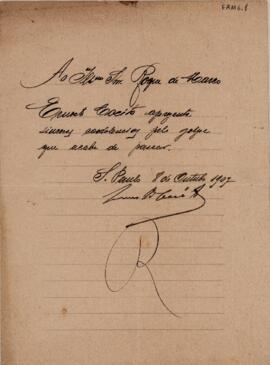 FRMG.8
Ao Illmo Snr. Roque de Marco
Ernesto Cocito apresenta
sinceras condolencias pelo golpe
que acaba de passar.
S. Paulo 8 de Outubro 1907
R